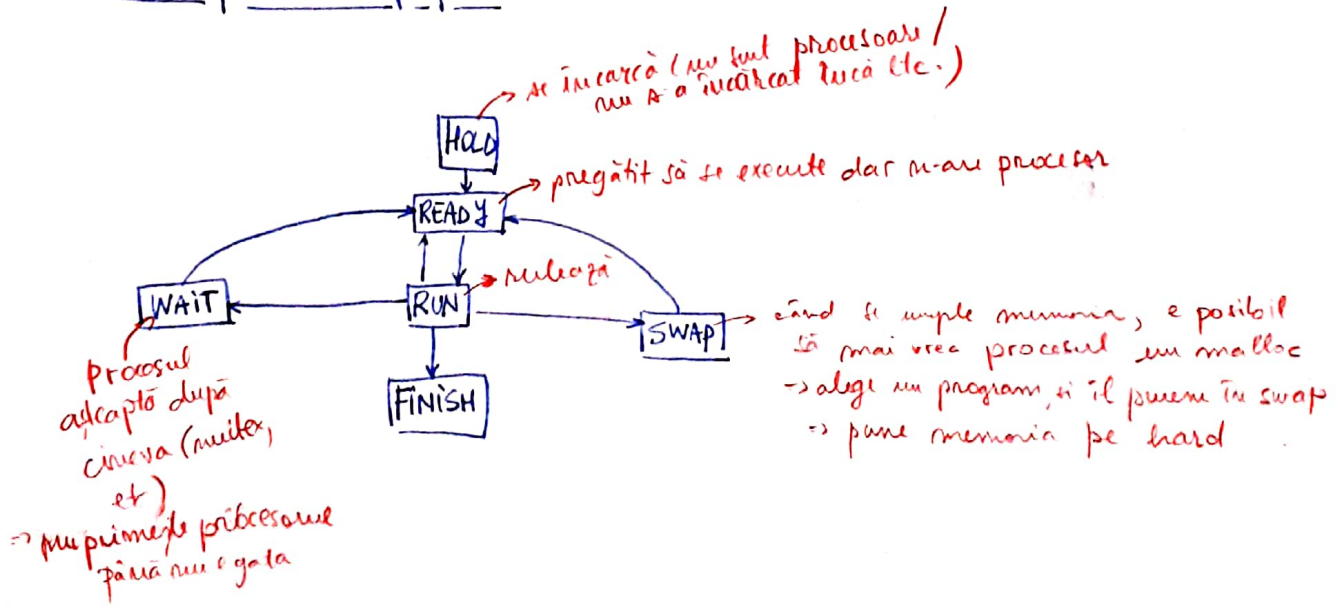 se încarcă (nu sunt procesoare /
nu s-a încărcat încă etc.)
HOLD
READY
pregătit să se execute dar n-are procesor
WAIT
RUN
rulează
SWAP
când se umple memoria, e posibil
să mai vrea procesul un malloc
→ alege un program, și îl punem în swap
→ pune memoria pe hard
FINISH
procesul
așteaptă după
cineva (mutex,
etc)
⇒ nu primește procesorul
până nu e gata